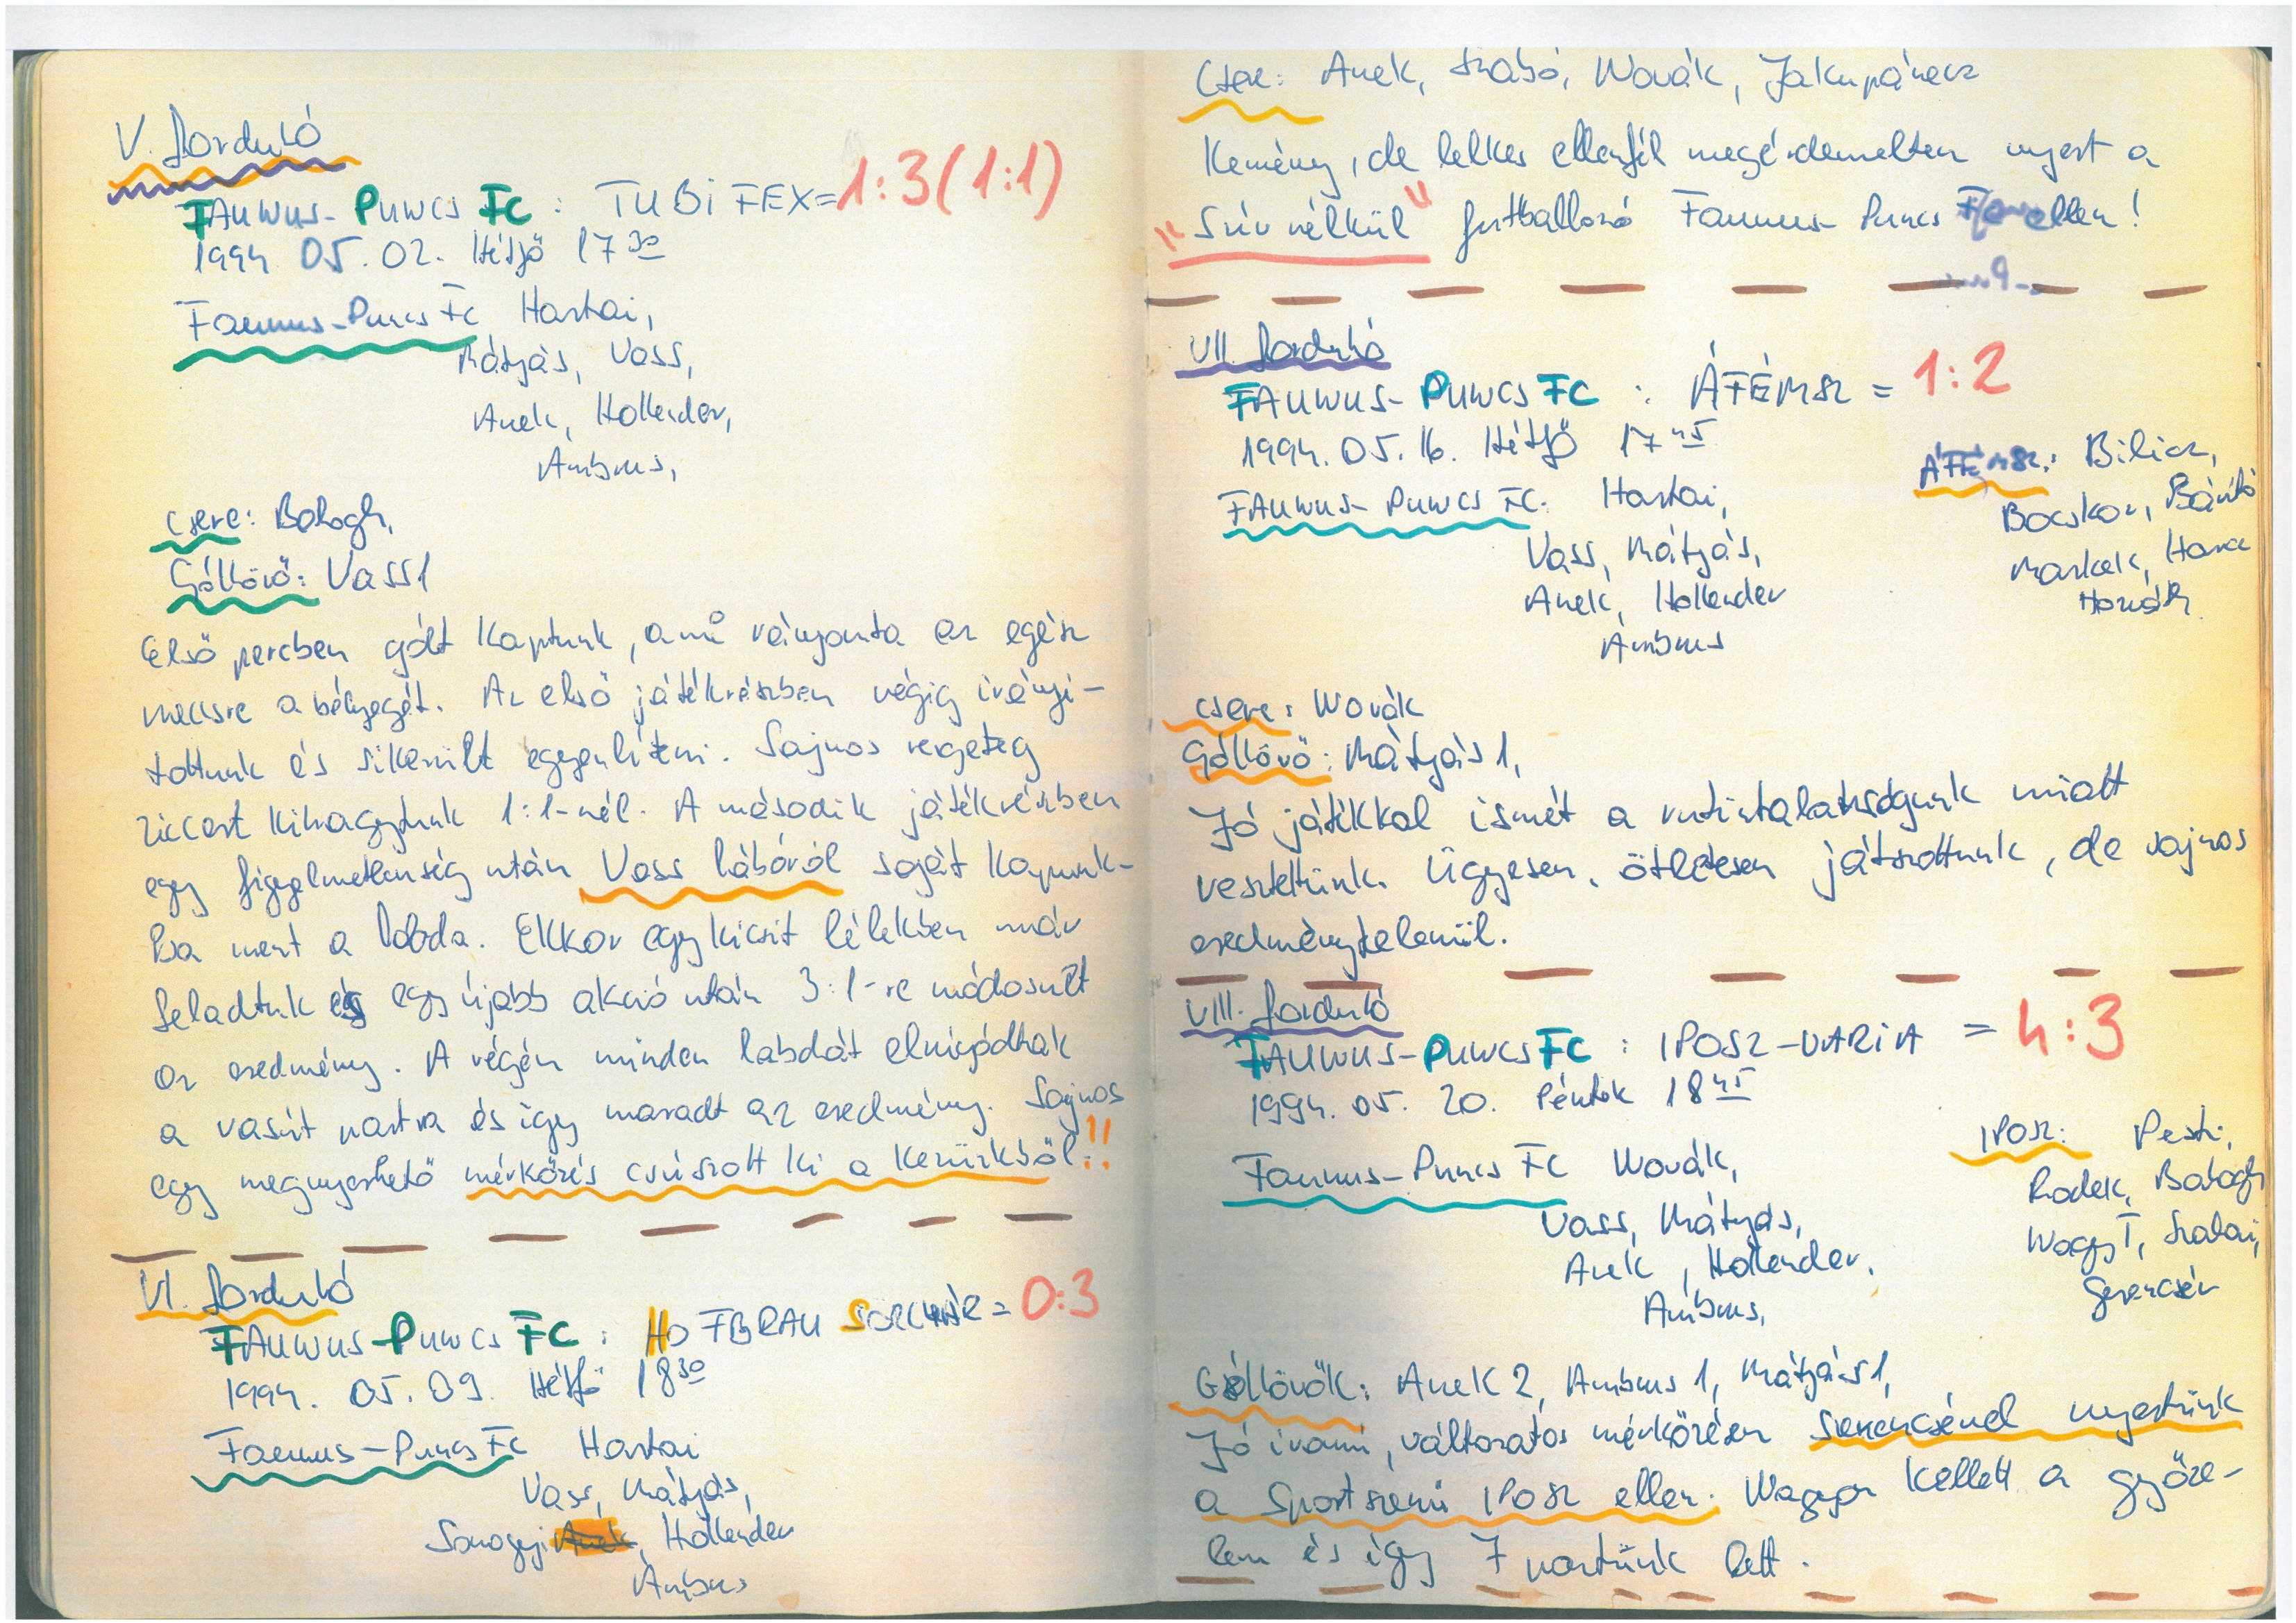 V. forduló
FAUNUS-PUNCS FC : TUBIFEX=1:3(1:1)
1994 05.02. Hétfő 17 30
Faunus-Puncs Fc Hartai,
Mátyás, Vass,
Anek, Hollender,
Ambrus,
csere: Balogh,
Góllövő: Vass 1
Első percben gólt kaptunk, ami rányomta az egész
meccsre a bélyegét. Az első játékrészben végig irányi-
tottunk és sikerült egyenlíteni. Sajnos rengeteg
ziccert kihagytunk 1:1-nél. A második játékrészben
egy figyelmetlenség után Vass lábáról saját kapunk-
ba ment a labda. Ekkor egy kicsit lélekben már
feladtuk és egy újabb akció után 3:1-re módosult
az eredmény. A végén minden labdát
a vasút partra és így maradt az eredmény. Sajnos
egy megnyerhető mérkőzés csúszott ki a kezünkből!!
VI. forduló
FAUNUS-PUNCS FC : HOFBRAU SÖRCSÁR = 0:3
1994. 05.09. Hétfő 18 30
Faunus-Puncs Fc Hartai
Vass, Mátyás,
Somogyi Anek, Hollender
Ambrus
Csere: Anek, Szabó, Novák, Jakupánecz
Kemény, de lelkes ellenfél megérdemelten nyert a
"Szív nélkül" futballozó Faunus-Puncs Fc ellen!
VII. forduló
FAUNUS-PUNCS FC : ÁFÉMSZ = 1:2
1994.05.16. Hétfő 17 45
FAUNUS-PUNCS FC: Hartai,
Vass, Mátyás,
Anek, Hollender
Ambrus
ÁFÉMSZ: Bilicz,
Bocskor, Bánító
Markek, Hara
Horváth
csere: Novák
Góllövő: Mátyás 1,
Jó játékkal ismét a rutintalanságunk miatt
vesztettünk. Ügyesen, ötletesen játszottunk, de sajnos
eredménytelenül.
VIII. forduló
FAUNUS-PUNCS FC : IPOSZ-VARIA = 4:3
1994. 05. 20. Péntek 18 45
Faunus-Puncs Fc Novák,
Vass, Mátyás,
Anek, Hollender,
Ambrus,
IPOSZ: Pesti,
Radek, Balogh
Nagy T, Szalai,
Gerencsér
Góllövők: Anek 2, Ambrus 1, Mátyás 1,
Jó iramú, változatos mérkőzésen szerencsével nyertünk
a Sportszerű IPOSZ ellen. Nagyon kellett a győze-
lem és így 7 pontunk lett.